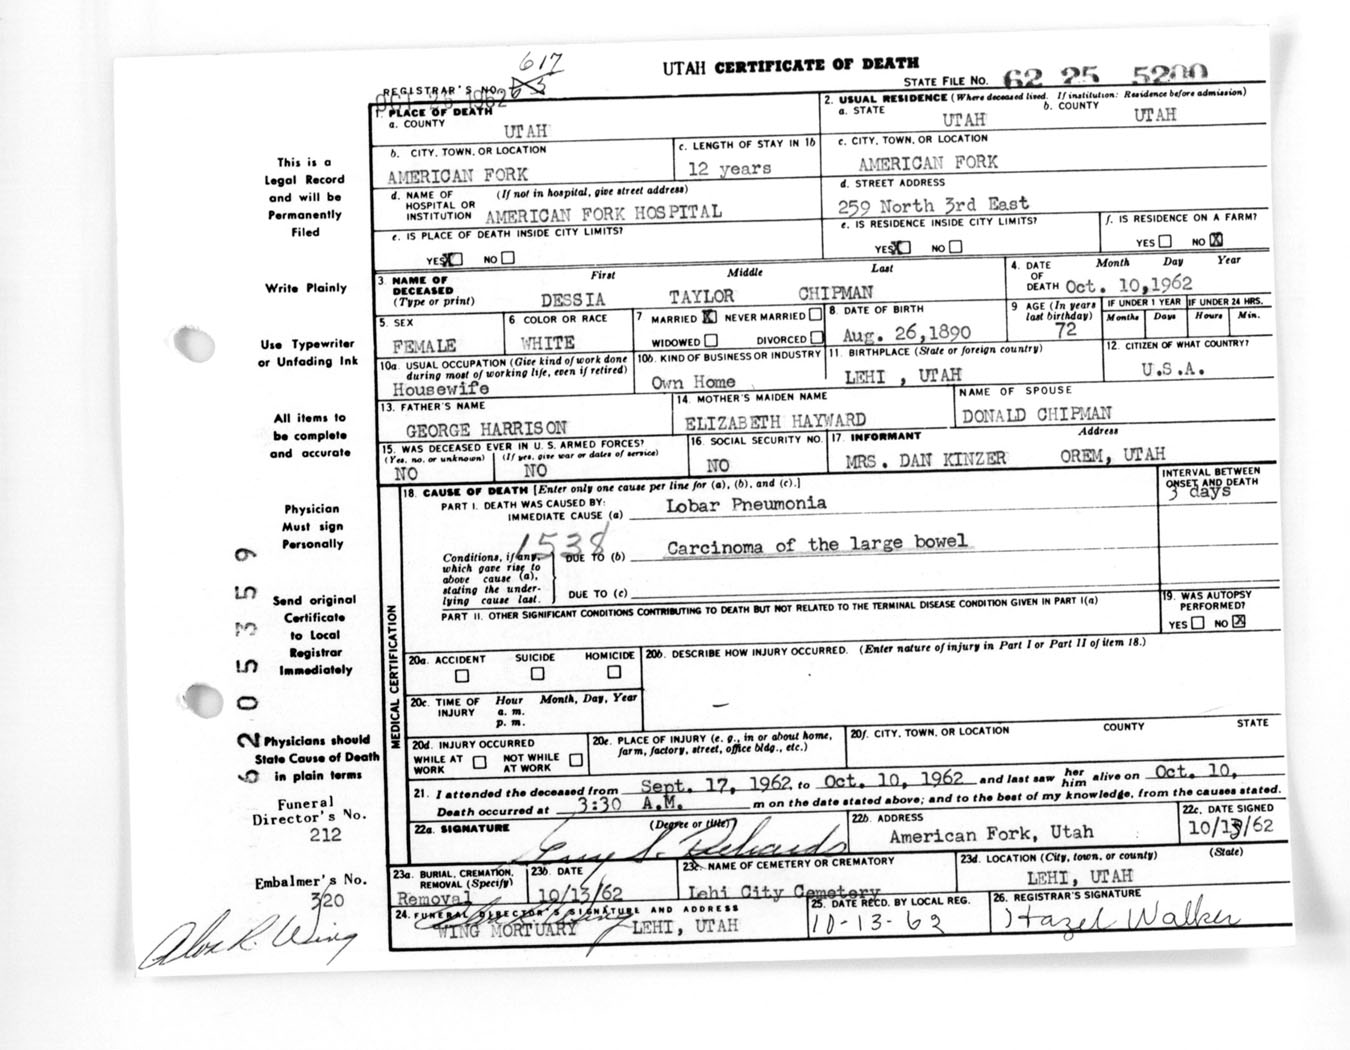 617
UTAH CERTIFICATE OF DEATH
STATE FILE NO. 62 25 5200
REGISTRAR'S NO. 63
OCT 23 1962
1. PLACE OF DEATH
a. COUNTY
UTAH
2. USUAL RESIDENCE (Where deceased lived. If institution: Residence before admission)
a. STATE
UTAH
b. COUNTY
UTAH
b. CITY, TOWN, OR LOCATION
AMERICAN FORK
c. LENGTH OF STAY IN 1b
12 years
c. CITY, TOWN, OR LOCATION
AMERICAN FORK
d. NAME OF HOSPITAL OR INSTITUTION
(If not in hospital, give street address)
AMERICAN FORK HOSPITAL
d. STREET ADDRESS
259 North 3rd East
e. IS PLACE OF DEATH INSIDE CITY LIMITS?
YES X NO
e. IS RESIDENCE INSIDE CITY LIMITS?
YES X NO
f. IS RESIDENCE ON A FARM?
YES NO X
3. NAME OF DECEASED (Type or print)
First Middle Last
DESSIA TAYLOR CHIPMAN
4. DATE OF DEATH
Month Day Year
Oct. 10,1962
5. SEX
FEMALE
6 COLOR OR RACE
WHITE
7 MARRIED X NEVER MARRIED
WIDOWED DIVORCED
8. DATE OF BIRTH
Aug. 26,1890
9 AGE (In years last birthday)
72
IF UNDER 1 YEAR
Months Days
IF UNDER 24 HRS.
Hours Min.
10a. USUAL OCCUPATION (Give kind of work done during most of working life, even if retired)
Housewife
10b. KIND OF BUSINESS OR INDUSTRY
Own Home
11. BIRTHPLACE (State or foreign country)
LEHI , UTAH
12. CITIZEN OF WHAT COUNTRY?
U.S.A.
13. FATHER'S NAME
GEORGE HARRISON
14. MOTHER'S MAIDEN NAME
ELIZABETH HAYWARD
NAME OF SPOUSE
DONALD CHIPMAN
15. WAS DECEASED EVER IN U. S. ARMED FORCES?
(Yes, no, or unknown) (If yes, give war or dates of service)
NO NO
16. SOCIAL SECURITY NO.
NO
17. INFORMANT Address
MRS. DAN KINZER OREM, UTAH
MEDICAL CERTIFICATION
18. CAUSE OF DEATH [Enter only one cause per line for (a), (b), and (c).]
INTERVAL BETWEEN ONSET AND DEATH
PART I. DEATH WAS CAUSED BY:
IMMEDIATE CAUSE (a) Lobar Pneumonia
3 days
1538
Conditions, if any, which gave rise to above cause (a), stating the underlying cause last.
DUE TO (b) Carcinoma of the large bowel
DUE TO (c)
PART II. OTHER SIGNIFICANT CONDITIONS CONTRIBUTING TO DEATH BUT NOT RELATED TO THE TERMINAL DISEASE CONDITION GIVEN IN PART I(a)
19. WAS AUTOPSY PERFORMED?
YES NO X
20a. ACCIDENT SUICIDE HOMICIDE
20b. DESCRIBE HOW INJURY OCCURRED. (Enter nature of injury in Part I or Part II of item 18.)
20c. TIME OF INJURY
Hour Month, Day, Year
a. m.
p. m.
20d. INJURY OCCURRED
WHILE AT WORK NOT WHILE AT WORK
20e. PLACE OF INJURY (e. g., in or about home, farm, factory, street, office bldg., etc.)
20f. CITY, TOWN, OR LOCATION COUNTY STATE
21. I attended the deceased from Sept. 17, 1962, to Oct. 10, 1962 and last saw her him alive on Oct. 10,
Death occurred at 3:30 A.M. m on the date stated above; and to the best of my knowledge, from the causes stated.
22a. SIGNATURE (Degree or title)
Richards
22b. ADDRESS
American Fork, Utah
22c. DATE SIGNED
10/13/62
23a. BURIAL, CREMATION, REMOVAL (Specify)
Removal
23b. DATE
10/13/62
23c. NAME OF CEMETERY OR CREMATORY
Lehi City Cemetery
23d. LOCATION (City, town, or county) (State)
LEHI, UTAH
24. FUNERAL DIRECTOR'S SIGNATURE AND ADDRESS
WING MORTUARY LEHI, UTAH
25. DATE RECD. BY LOCAL REG.
10-13-62
26. REGISTRAR'S SIGNATURE
Hazel Walker
This is a
Legal Record
and will be
Permanently
Filed
Write Plainly
Use Typewriter
or Unfading Ink
All items to
be complete
and accurate
Physician
Must sign
Personally
Send original
Certificate
to Local
Registrar
Immediately
Physicians should
State Cause of Death
in plain terms
Funeral
Director's No.
212
Embalmer's No.
320
Alva R. Wing